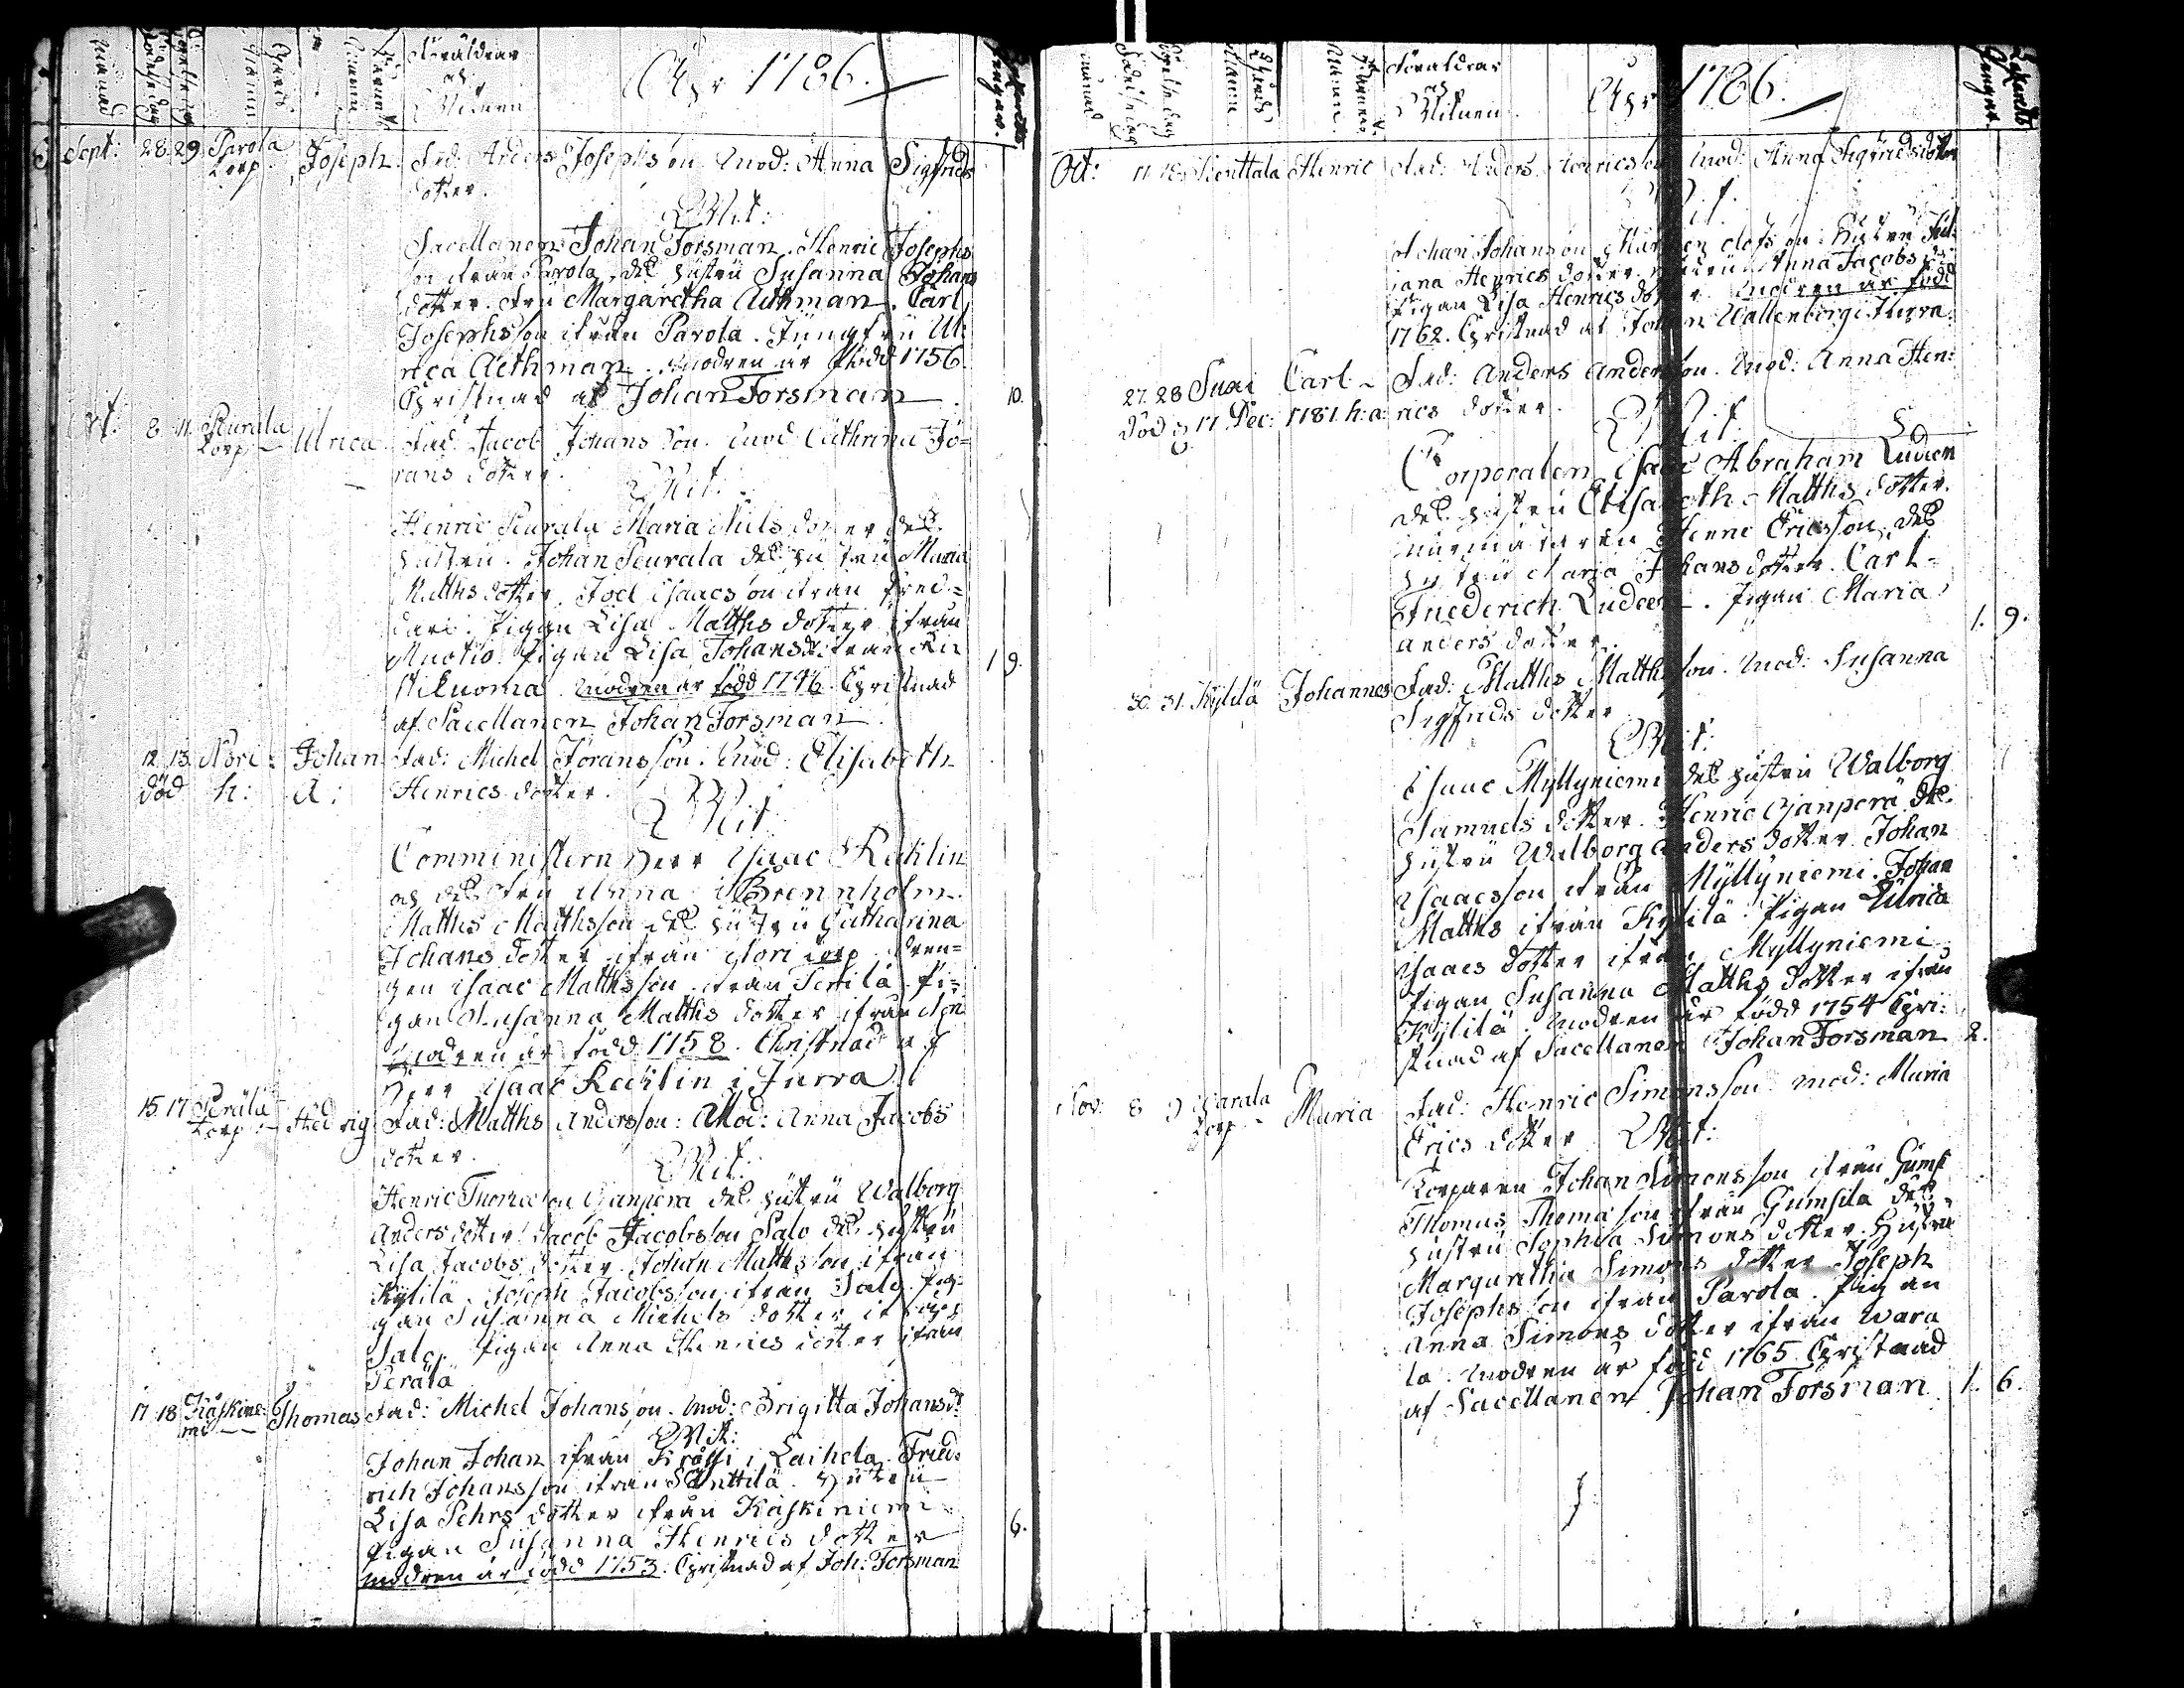 Föräldrar
och
Witnen
Åhr 1786.
Sept: 28. 29. Parola torp Joseph. Fad: Anders Josephs son. Mod: Anna Sigfrids
dotter.
Wit:
Sacellanen Johan Forsman. Henric Josephs
son ifrån Parola, des hustru Susanna Johans
dotter. Fru Margaretha Aethman. Carl
Josephsson ifrån Parola. Jungfru Ul
rica Aethman. Modren är född 1756.
Christnad af Johan Forsman. 10.
Oct: 8. 11. Peurala torp Ulrica. Fad: Jacob Johans son. Mod: Cathrina Jö=
rans dotter.
Wit:
Henric Peurala Maria Nils dotter des
hustru. Johan Peurala des hustru Maria
Matths dotter. Joel Isaacs son ifrån
Pigan Lisa Matths dotter ifrån
Muotio. Pigan Lisa Johans ifrån
Modren är född 1746. Christnad
af Sacellanen Johan Forsman. 1 9.
12. 13. Nori Johan Fad: Michel Jöransson. Mod: Elisabeth
död h: a: Henrics dotter.
Wit:
Comministern Herr Isaac Reklin
och des Fru Anna Brennholm.
Matths Matthsson des hustru Catharina
Johans dotter ifrån Nori torp dren=
gen Isaac Matthsson ifrån Pentilä. Pi=
gan Susanna Matths dotter ifrån Nori
Modren är född 1758. Christnad af
Herr Isaac Reklin i Jurva
15. 17. Perälä torp Hedvig Fad: Matths Andersson: Mod: Anna Jacobs
dotter.
Wit:
Henric Thomasson Ojanperä des hustru Walborg
Anders dotter Jacob Jacobsson Salo des hustru
Lisa Jacobs dotter. Johan Matthsson ifrån
Kylilä. Joseph Jacobsson ifrån Salo. Pi
gan Susanna Michels dotter ifrån
Salo. Pigan Anna Henrics dotter ifrån
Perälä
17. 18. Käskine: mi Thomas Fad: Michel Johansson. Mod: Brigitta Johans d:
Wit:
Johan Johan ifrån i Laihela. Fried:
rich Johansson ifrån Änttilä. Hustru
Lisa Pehrs dotter ifrån Käskiniemi
Pigan Susanna Henrics dotter
Modren är född 1753. Christnad af Joh: Forsman. 6.
Föräldrar
och
Witnen
Åhr 1786.
Oct: 17. 18. Kenttala Henric Fad: Anders Henricsson Mod: Anna Sigfrids dotter
Wit:
Johan Johansson, Olofsson Hustru Jul
iana Henrics dotter. Anna Jacobs
Pigan Lisa Henrics dotter. Modren är född
1762. Christnad af Johan Wallenborg i Jurva.
27. 28 Carl Fad: Anders Andersson. Mod: Anna Hen:
död d 17 Dec: 1787 h: a: rics dotter.
Wit:
Corporalen Isaac Abraham Ludeen
des hustru Elisabeth Matths dotter.
Henric Ericsson, des
hustru Maria Johans dotter. Carl
Friederich Ludeen. Pigan Maria
Anders dotter. 1. 9.
30. 31. Kylilä Johannes Fad: Matths Matthsson. Mod: Susanna
Sigfrids dotter
Wit:
Isaac Myllyniemi des hustru Walborg
Samuels dotter. Henric Ojanperä des
hustru Walborg Anders dotter. Johan
Isaacsson ifrån Myllyniemi. Johan
Matths ifrån Kylilä. Pigan Ulrica
Isaacs dotter ifrån Myllyniemi
Pigan Susanna Matths dotter ifrån
Kylilä. Modren är född 1754 Chri:
stnad af Sacellanen Johan Forsman 2.
Nov: 8. 9 Warala torp Maria Fad: Henric Simonsson Mod: Maria
Erics dotter Wit:
Torparen Johan Simonsson ifrån Gums
Thomas Thomasson ifrån Gumsila des
hustru Sophia Simons dotter. Hustru
Margaretha Simons dotter Joseph
Josephsson ifrån Parola. Pigan
Anna Simons dotter ifrån Wara
la. Modren är född 1765. Christnad
af Sacellanen Johan Forsman 1. 6.